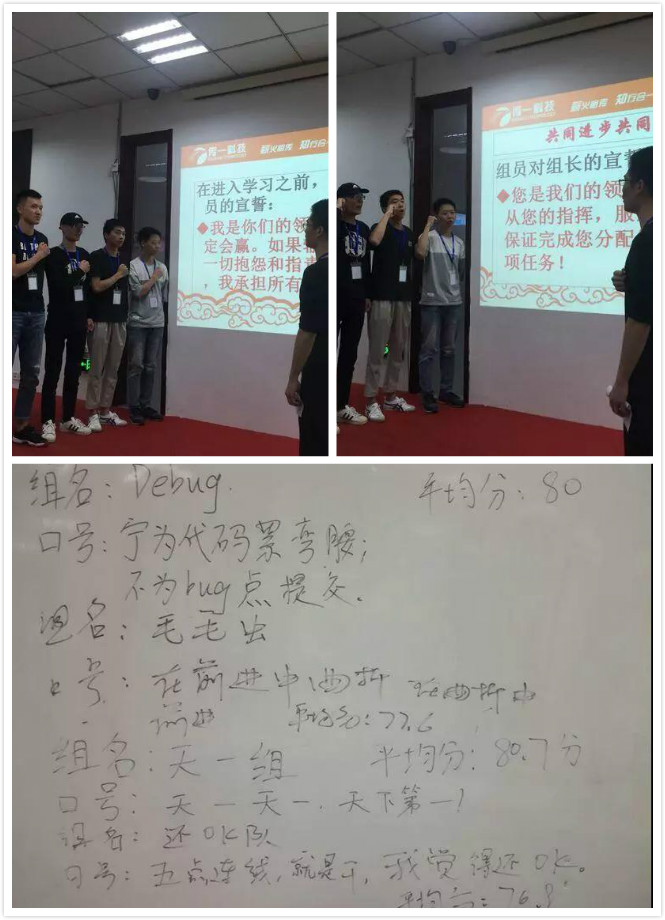 一科技
薪火相传 知行合一
在进入学习之前,
员的宣誓:
◆我是你们的领
定会赢。如果
一切抱怨和指责
,我承担所有
一科技
薪火相传 知行合一
共同进步共同
组员对组长的宣誓
◆您是我们的领
从您的指挥,服
保证完成您分配
项任务!
组名: Debug.
平均分: 80
口号: 宁为代码累弯腰;
不为bug点提交.
组名: 毛毛虫
口号: 在前进中曲折 在曲折中
前进 平均分: 77.6
组名: 天一组 平均分: 80.7分
口号: 天一天一.天下第一!
组名: 还OK队
口号: 五点连线,就是干,我觉得还OK。
平均分: 76.8